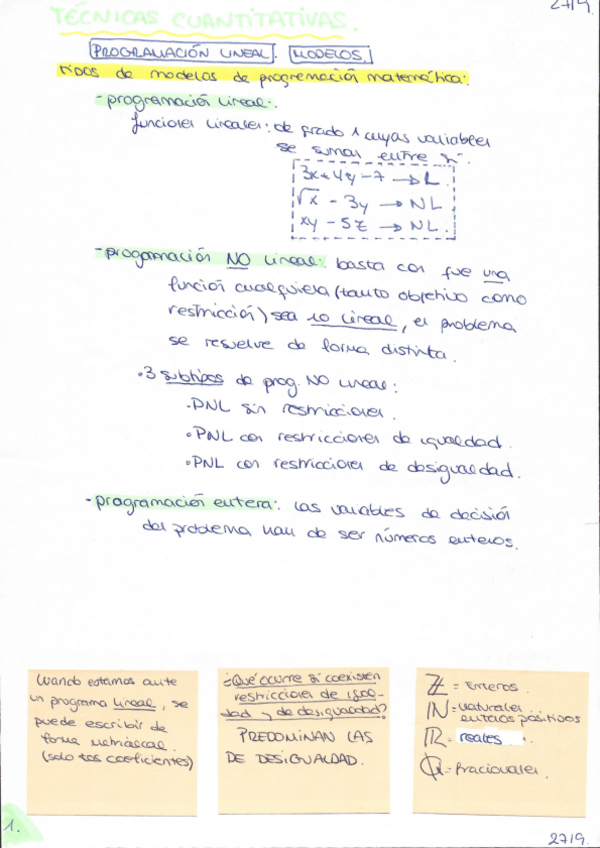 27/9.
TÉCNICAS CUANTITATIVAS.
PROGRAMACIÓN LINEAL. MODELOS.
tipos de modelos de programación matemática:
- programación lineal:
funciones lineales: de grado 1 cuyas variables
se suman entre sí.
3x + 4y - 7 → L.
√x - 3y → NL.
xy - 5z → NL.
- programación NO lineal: basta con que una
función cualquiera (tanto objetivo como
restricción) sea no lineal, el problema
se resuelve de forma distinta.
• 3 subtipos de prog. NO lineal:
• PNL sin restricciones.
• PNL con restricciones de igualdad.
• PNL con restricciones de desigualdad.
- programación entera: las variables de decisión
del problema han de ser números enteros.
Cuando estamos ante
un programa lineal, se
puede escribir de
forma matricial.
(solo los coeficientes)
¿Qué ocurre si coexisten
restricciones de igual-
dad y de desigualdad?
PREDOMINAN LAS
DE DESIGUALDAD.
ℤ = Enteros.
ℕ = naturales
enteros positivos
ℝ = reales.
ℚ = fraccionales.
1.
27/9.